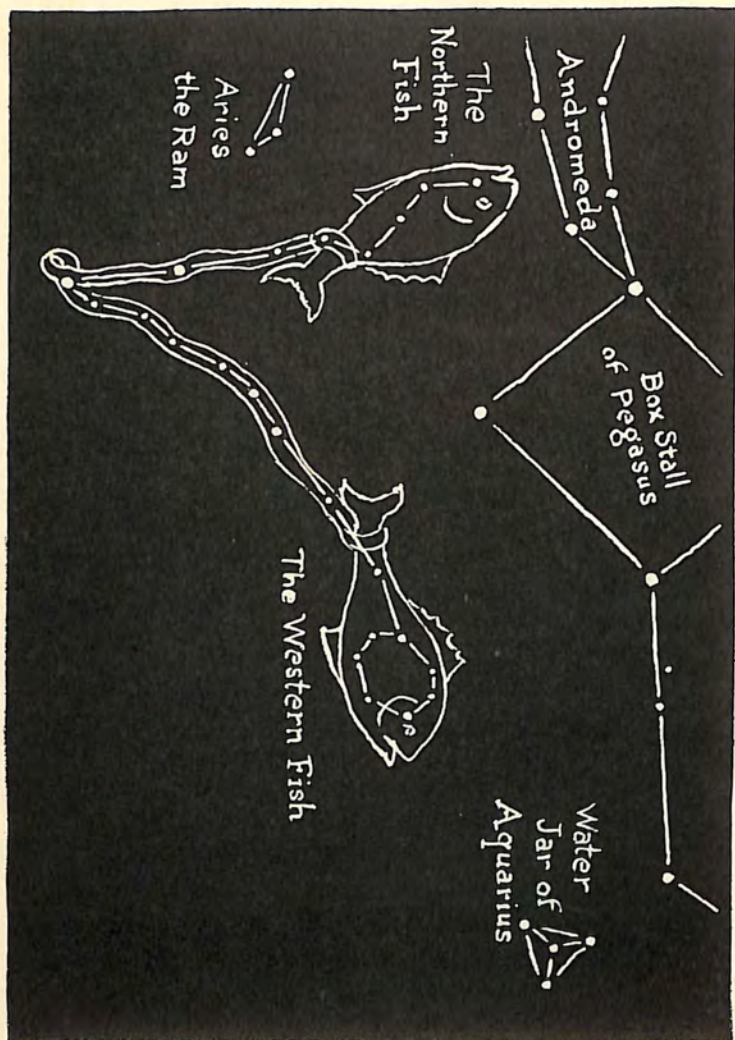 Andromeda
The
Northern
Fish
Aries
the Ram
Box Stall
of Pegasus
The Western Fish
Water
Jar of
Aquarius